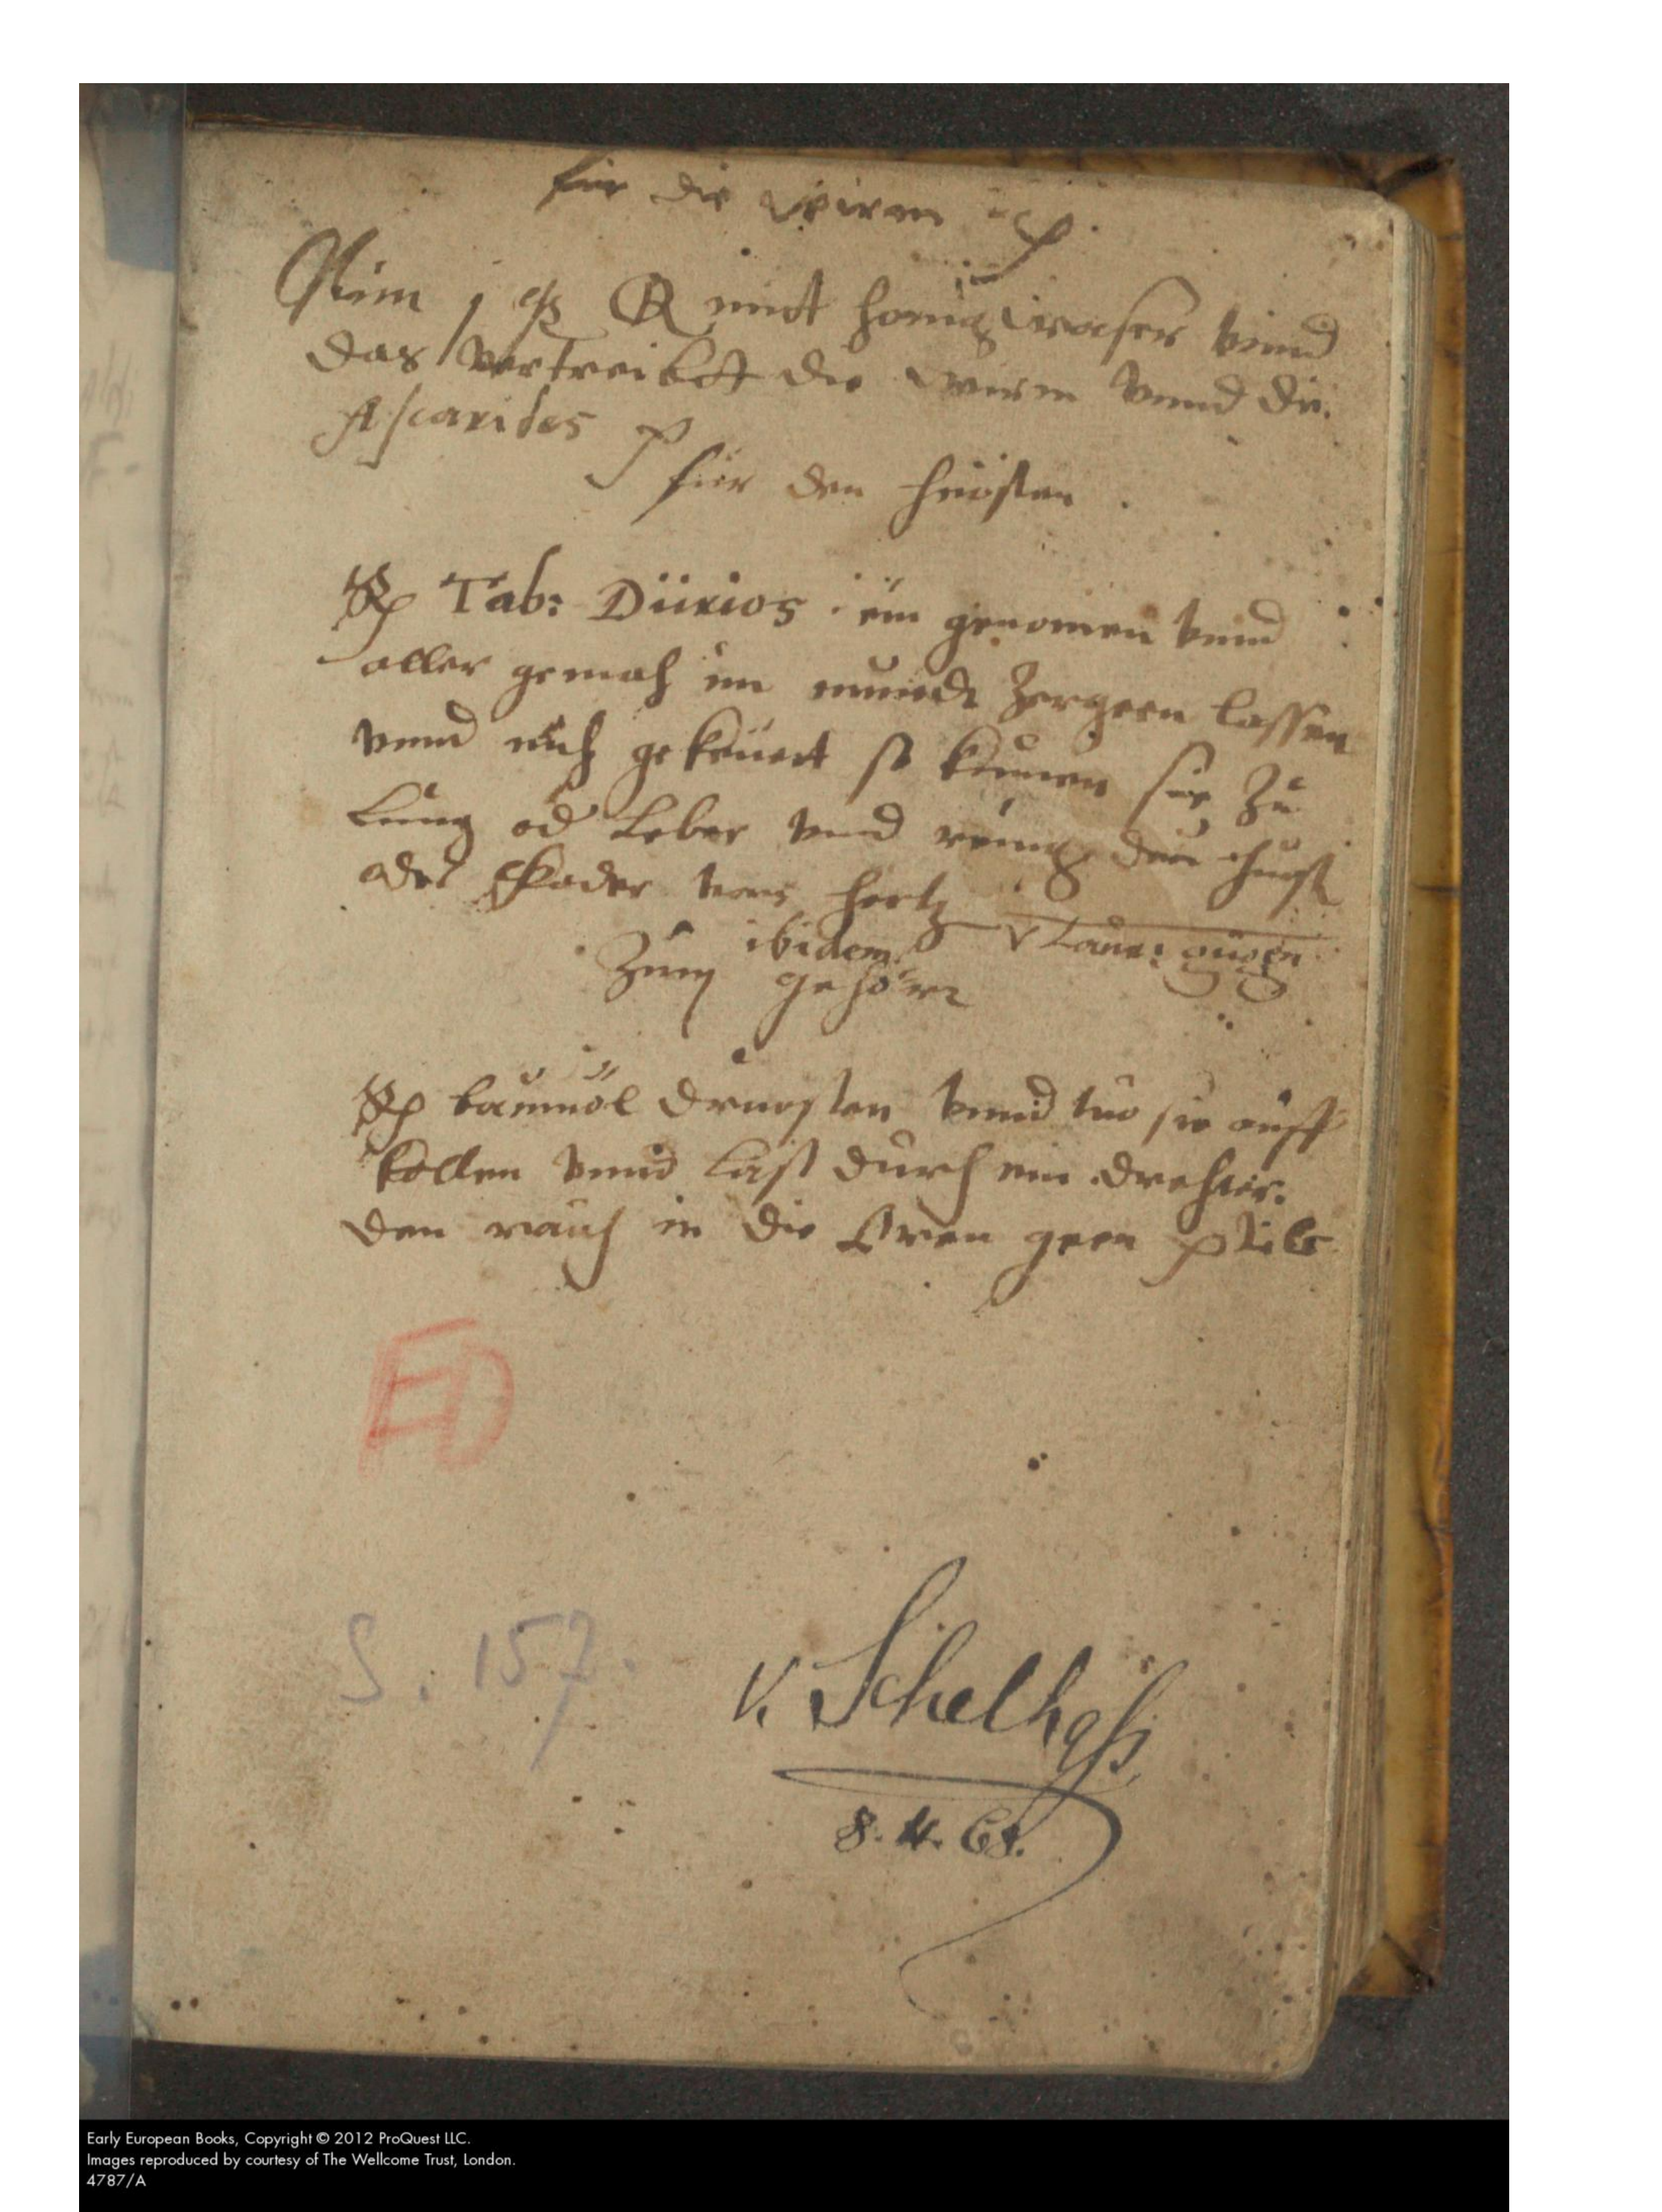 für die Wirm
Nim j mit honig waser vnnd
das vertreibet die wirm vnnd die
Ascarides
für den huosten
Tab: Diirios ein genomen vnnd
aller gemach im mundt zergeen lassen
vnnd nich gekeuert so kumen sie zu
Lung od Leber vnd
oder vom hertz
ibidem
Zum gehör
baumöl druosten vnnd tuo sie auff
kollen vnnd last durch ein drehter
den rauch in die Oren geen
ED
S. 157.
v. Schelhass
8. 4. 68.
Early European Books, Copyright © 2012 ProQuest LLC.
Images reproduced by courtesy of The Wellcome Trust, London.
4787/A